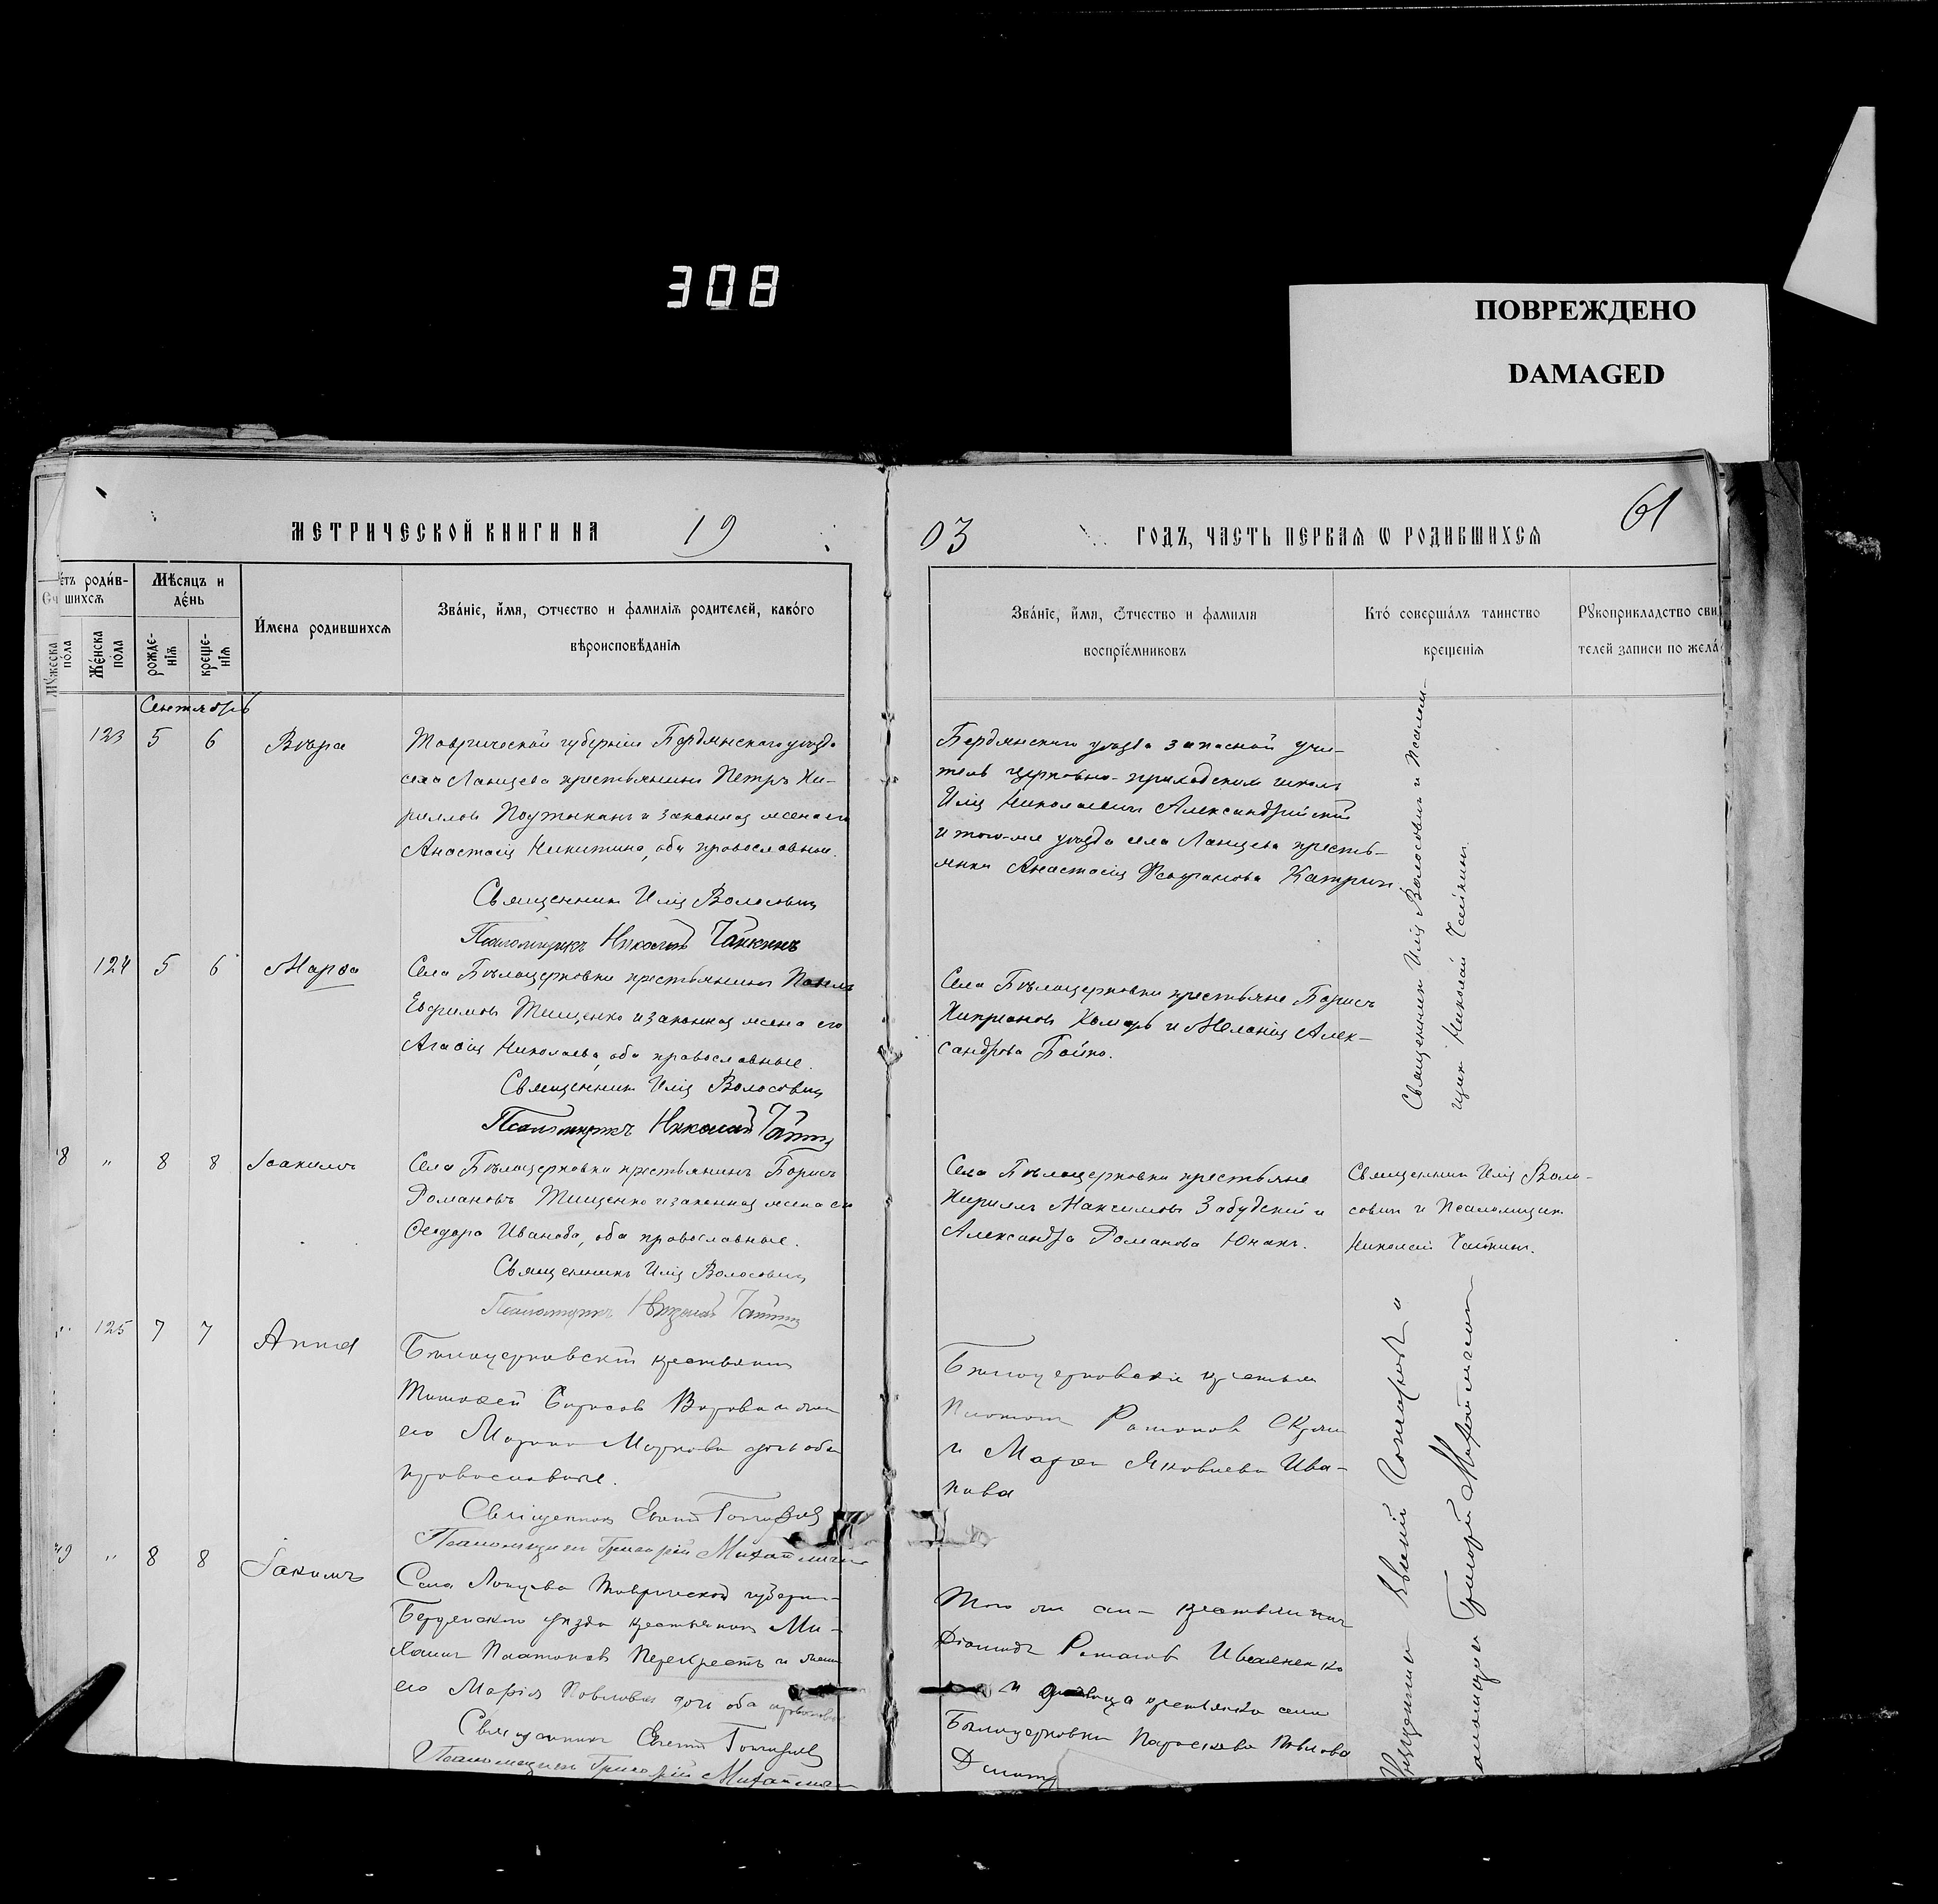 308
ПОВРЕЖДЕНО
DAMAGED
МЕТРИЧЕСКОЙ КНИГИ НА 19
03 ГОДЪ, ЧАСТЬ ПЕРВАЯ Ѡ РОДИВШИХСЯ
61
родив-
шихся
Мѣсяцъ и
день
Имена родившихся
Званіе, имя, отчество и фамилія родителей, какого
вѣроисповѣданія
Мужеска
пола
Женска
пола
рожде-
нія
креще-
нія
Званіе, имя, отчество и фамилія
воспріемниковъ
Кто совершалъ таинство
крещенія
Рукоприкладство сви
телей записи по жела
Сентябрь
123 5 6 Вѣра
Таврической губерніи Бердянскаго уѣзда
села Ланцева крестьянинъ Петръ Ки-
рилловъ и законная жена его
Анастасія Никитина, оба православные.
Священникъ Илія Волосовичъ
Псаломщикъ Николай Чайкинъ
Бердянскаго уѣзда запасной учи-
тель церковно-приходскихъ школъ
Илія Николаевичъ Александрійскій
и того-же уѣзда села Ланцева кресть-
янка Анастасія
Священникъ Илія Волосовичъ и Псалом-
щикъ Николай Чайкинъ.
124 5 6 Марѳа
Села Бѣлоцерковки крестьянинъ
Евфимовъ Тищенко и законная жена его
Агаѳія Николаева, оба православные.
Священникъ Илія Волосовичъ
Псаломщикъ Николай
Села Бѣлоцерковки крестьяне Борисъ
Кипріановъ и Меланія Алек-
сандрова Бойко.
8 " 8 8 Іоакимъ
Села Бѣлоцерковки крестьянинъ Борисъ
Романовъ Тищенко и законная жена его
Ѳеодора Иванова, оба православные.
Священникъ Илія Волосовичъ
Псаломщикъ Николай
Села Бѣлоцерковки крестьяне
Кириллъ Максимовъ Забудскій и
Александра Романова Юнакъ.
Священникъ Илія Воло-
совичъ и Псаломщикъ
Николай Чайкинъ.
125 7 7 Анна
Бѣлоцерковскій крестьянинъ
Тимоѳей Борисовъ и жена
его Марина Маркова дочь оба
православные.
Священникъ
Псаломщикъ Григорій
Бѣлоцерковскіе крестьяне
Романовъ
и Марѳа Яковлева Ива-
нова
Священникъ
Псаломщикъ Григорій
9 " 8 8 Іакимъ
Села Ланцева Таврической губерніи
Бердянскаго уѣзда крестьянинъ Ми-
хаилъ Платоновъ Перехрестъ и жена
его Марія Павлова дочь оба
Священникъ
Псаломщикъ Григорій
Того же села крестьянинъ
Діомидъ
и дѣвица крестьянка села
Бѣлоцерковки Параскева Павлова